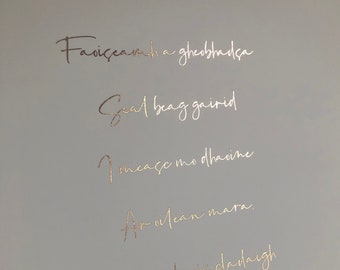 Faoiseamh a gheobhadsa
Seal beag gairid
I measc mo dhaoine
Ar oilean mara
cladaigh